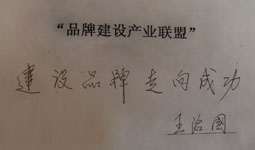 “品牌建设产业联盟”
建设品牌走向成功
王治国